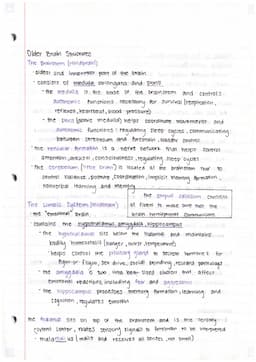 Older Brain Structures
The Brainstem (Hindbrain)
- oldest and innermost part of the brain
- consists of medulla oblongata and pons
- the medulla is the base of the brainstem and controls
autonomic functions necessary for survival (respiration,
reflexes, heartbeat, blood pressure)
- the pons (above medulla) helps coordinate movements and
autonomic functions (regulating sleep cycles, communicating
between cerebrum and
- the reticular formation is a nerve network that helps control
attention, arousal, consciousness, regulating sleep cycles
- the cerebellum ("little brain") is located at the rear to
control balance, posture, coordination, implicit memory formation,
nonverbal learning and memory
- the corpus callosum consists
of fibers to make sure that the
brain hemispheres communicate
The Limbic System (Midbrain)
- the "emotional" brain
- contains the hypothalamus, amygdala, hippocampus
- the hypothalamus sits below the thalamus and maintains
bodily homeostasis (hunger, thirst, temperature)
- helps control the pituitary gland to secrete hormones for
fight-or-flight, sex drive, social bonding, reward
- the amygdala is two lima bean-sized clusters that affect
emotional reactions, including fear and aggression
- the hippocampus processes memory formation, learning and
cognition, regulates emotion
- the thalamus sits on top of the brainstem and is the sensory
control center, relates sensory signals to forebrain to be interpreted
- thalaSMELLus (main and receives all senses, no smell)